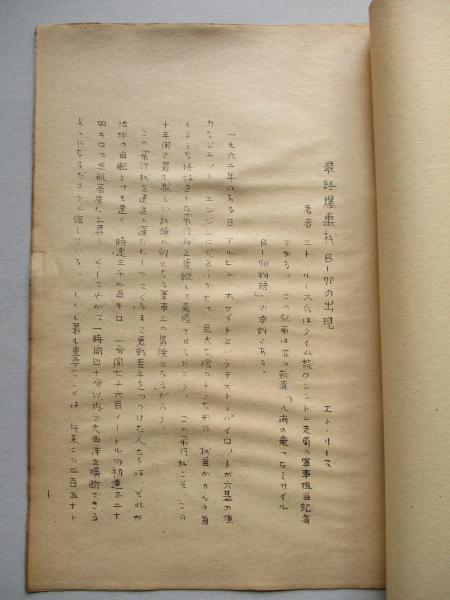 最終爆撃机 B-70の出現
エド・リース
著者 エド・リース氏はタイム誌ワシントン支局の軍事担当記者
である。この記事は彼の新著「人間の乗ったミサイル
B-70物語」の要約である。
一九六二年のある日 アルビン ホワイトというテスト・パイロットが六基の強
力なジェット・エンジンに火をふかせて 巨大な 首
のような格好をした飛行机を操縦して離陸させるだろう。この飛行机こそ この
十年間で最も激しい討論の的となった軍事上の冒険となるだろう。
この飛行机を现 まで悪戦苦斗をつづけた人たちは それが
地球の自転よりも速く 時速三千二百キロ 一分間 七十六百 メートルの初速で二十
四キロの巡航高度に上昇し そしてやがて一時間四十分以内で大西洋を横断できる
ようになるだろうと信じている。しかも最も重要なことは 将来この二百五十ト
1